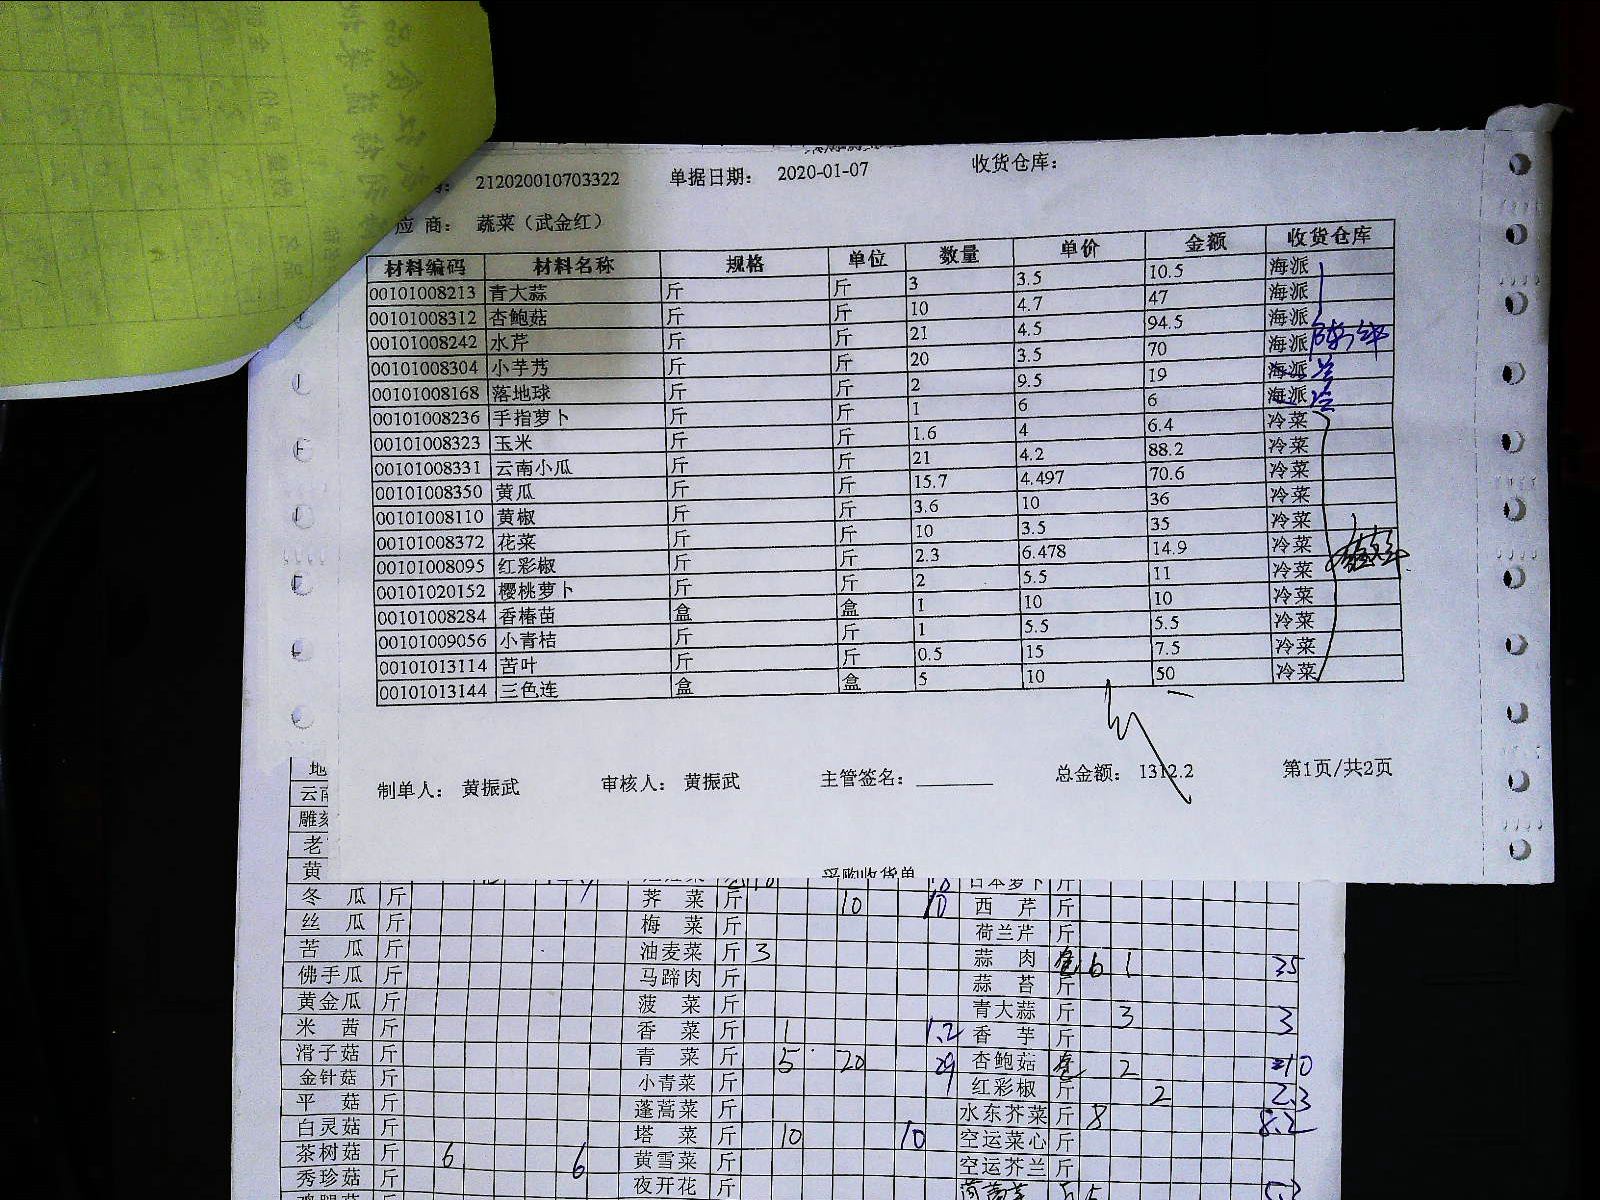 212020010703322 单据日期: 2020-01-07 收货仓库:
应 商: 蔬菜（武金红）
材料编码 材料名称 规格 单位 数量 单价 金额 收货仓库
00101008213 青大蒜 斤 斤 3 3.5 10.5 海派
00101008312 杏鲍菇 斤 斤 10 4.7 47 海派
00101008242 水芹 斤 斤 21 4.5 94.5 海派
00101008304 小芋艿 斤 斤 20 3.5 70 海派
00101008168 落地球 斤 斤 2 9.5 19 海派
00101008236 手指萝卜 斤 斤 1 6 6 海派
00101008323 玉米 斤 斤 1.6 4 6.4 冷菜
00101008331 云南小瓜 斤 斤 21 4.2 88.2 冷菜
00101008350 黄瓜 斤 斤 15.7 4.497 70.6 冷菜
00101008110 黄椒 斤 斤 3.6 10 36 冷菜
00101008372 花菜 斤 斤 10 3.5 35 冷菜
00101008095 红彩椒 斤 斤 2.3 6.478 14.9 冷菜
00101020152 樱桃萝卜 斤 斤 2 5.5 11 冷菜
00101008284 香椿苗 盒 盒 1 10 10 冷菜
00101009056 小青桔 斤 斤 1 5.5 5.5 冷菜
00101013114 苦叶 斤 斤 0.5 15 7.5 冷菜
00101013144 三色连 盒 盒 5 10 50 冷菜
制单人: 黄振武 审核人: 黄振武 主管签名: 总金额: 1312.2 第1页/共2页
采购收货单
地
云南
雕刻
老
黄 日本萝卜 斤
冬瓜 斤 荠菜 斤 10 10 西芹 斤
丝瓜 斤 梅菜 斤 荷兰芹 斤
苦瓜 斤 油麦菜 斤 3 蒜肉 6 1 35
佛手瓜 斤 马蹄肉 斤 蒜苔 斤
黄金瓜 斤 菠菜 斤 青大蒜 斤 3 3
米茜 斤 香菜 斤 1 1.2 香芋 斤
滑子菇 斤 青菜 斤 5 20 29 杏鲍菇 2 10
金针菇 斤 小青菜 斤 红彩椒 斤 2 2.3
平菇 斤 蓬蒿菜 斤 水东芥菜 斤 8 8.2
白灵菇 斤 塔菜 斤 10 10 空运菜心 斤
茶树菇 斤 6 6 黄雪菜 斤 空运芥兰 斤
秀珍菇 斤 夜开花 斤